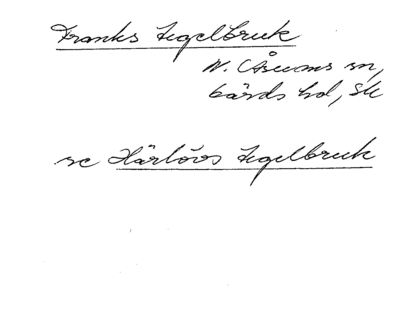 Franks tegelbruk
N. Åsums sn,
Gärds hd, Sk
se Härlövs tegelbruk